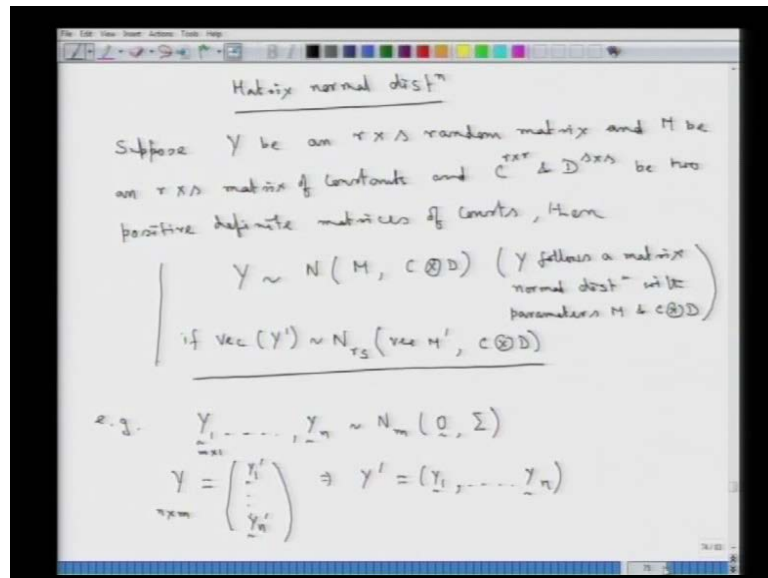 File Edit View Insert Actions Tools Help
Matrix normal distⁿ
Suppose Y be an r×s random matrix and M be
an r×s matrix of constants and C^{r×r} & D^{s×s} be two
positive definite matrices of consts, then
Y ~ N ( M, C ⊗ D ) ( Y follows a matrix
normal distⁿ with
parameters M & C⊗D )
if vec (Y') ~ N_{rs} ( vec M', C⊗D )
e.g. Y₁, ....., Yₙ ~ Nₘ ( 0, Σ )
m×1
Y = ( Y₁' ⋮ Yₙ' ) ⇒ Y' = ( Y₁, ..... Yₙ )
n×m